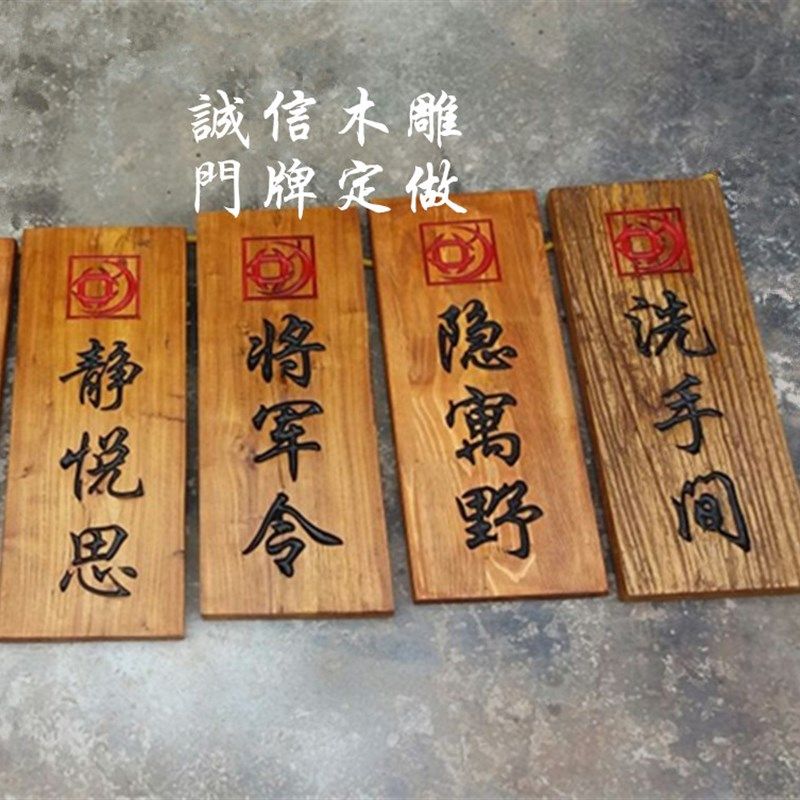 誠信木雕
門牌定做
静悦思
将军令
隐寓野
洗手间